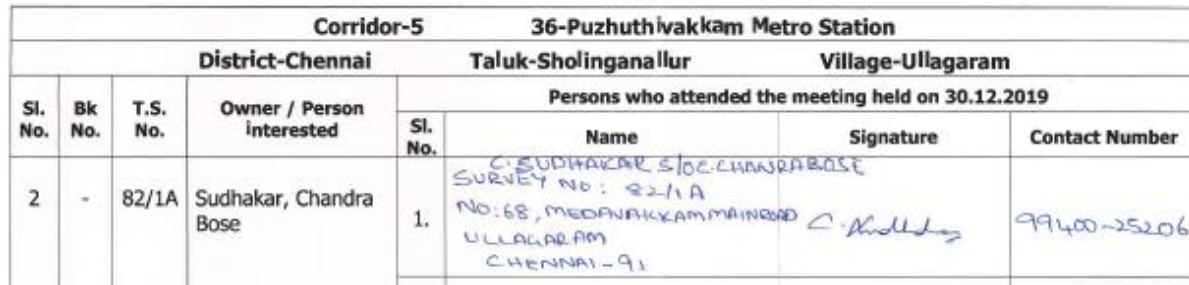 Corridor-5 36-Puzhuthivakkam Metro Station
District-Chennai Taluk-Sholinganallur Village-Ullagaram
Sl. No. Bk No. T.S. No. Owner / Person interested Persons who attended the meeting held on 30.12.2019
Sl. No. Name Signature Contact Number
2 - 82/1A Sudhakar, Chandra Bose 1.
C. SUDHAKAR S/O C. CHANRABOSE
SURVEY NO: 82/1A
NO: 68, MEDAVAKKAM MAINROAD
ULLAGARAM
CHENNAI-91
99400-25206